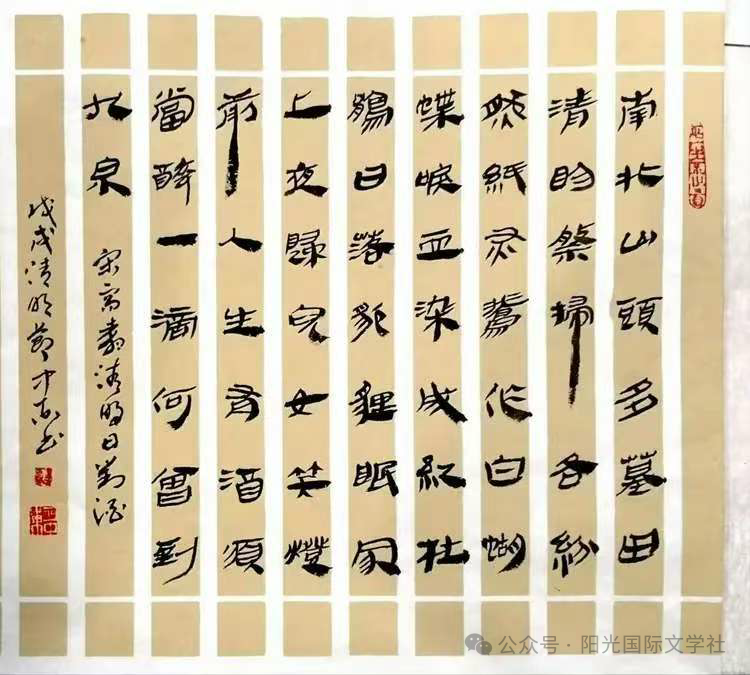 南北山頭多墓田
清明祭掃各紛
然紙灰飛化白蝴
蝶淚血染成紅杜
鵑日落狐狸眠冢
上夜歸兒女笑燈
前人生有酒須
當醉一滴何曾到
九泉
宋高翥清明日對酒
戊戌清明節
公众号 · 阳光国际文学社